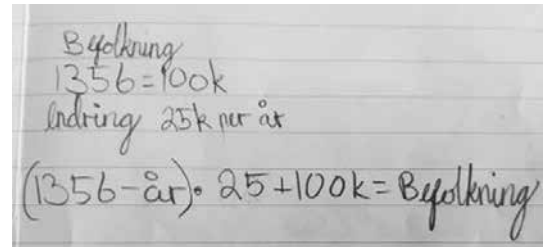 Befolkning
1356=100k
Endring 25k per år
(1356-år)• 25+100k= Befolkning